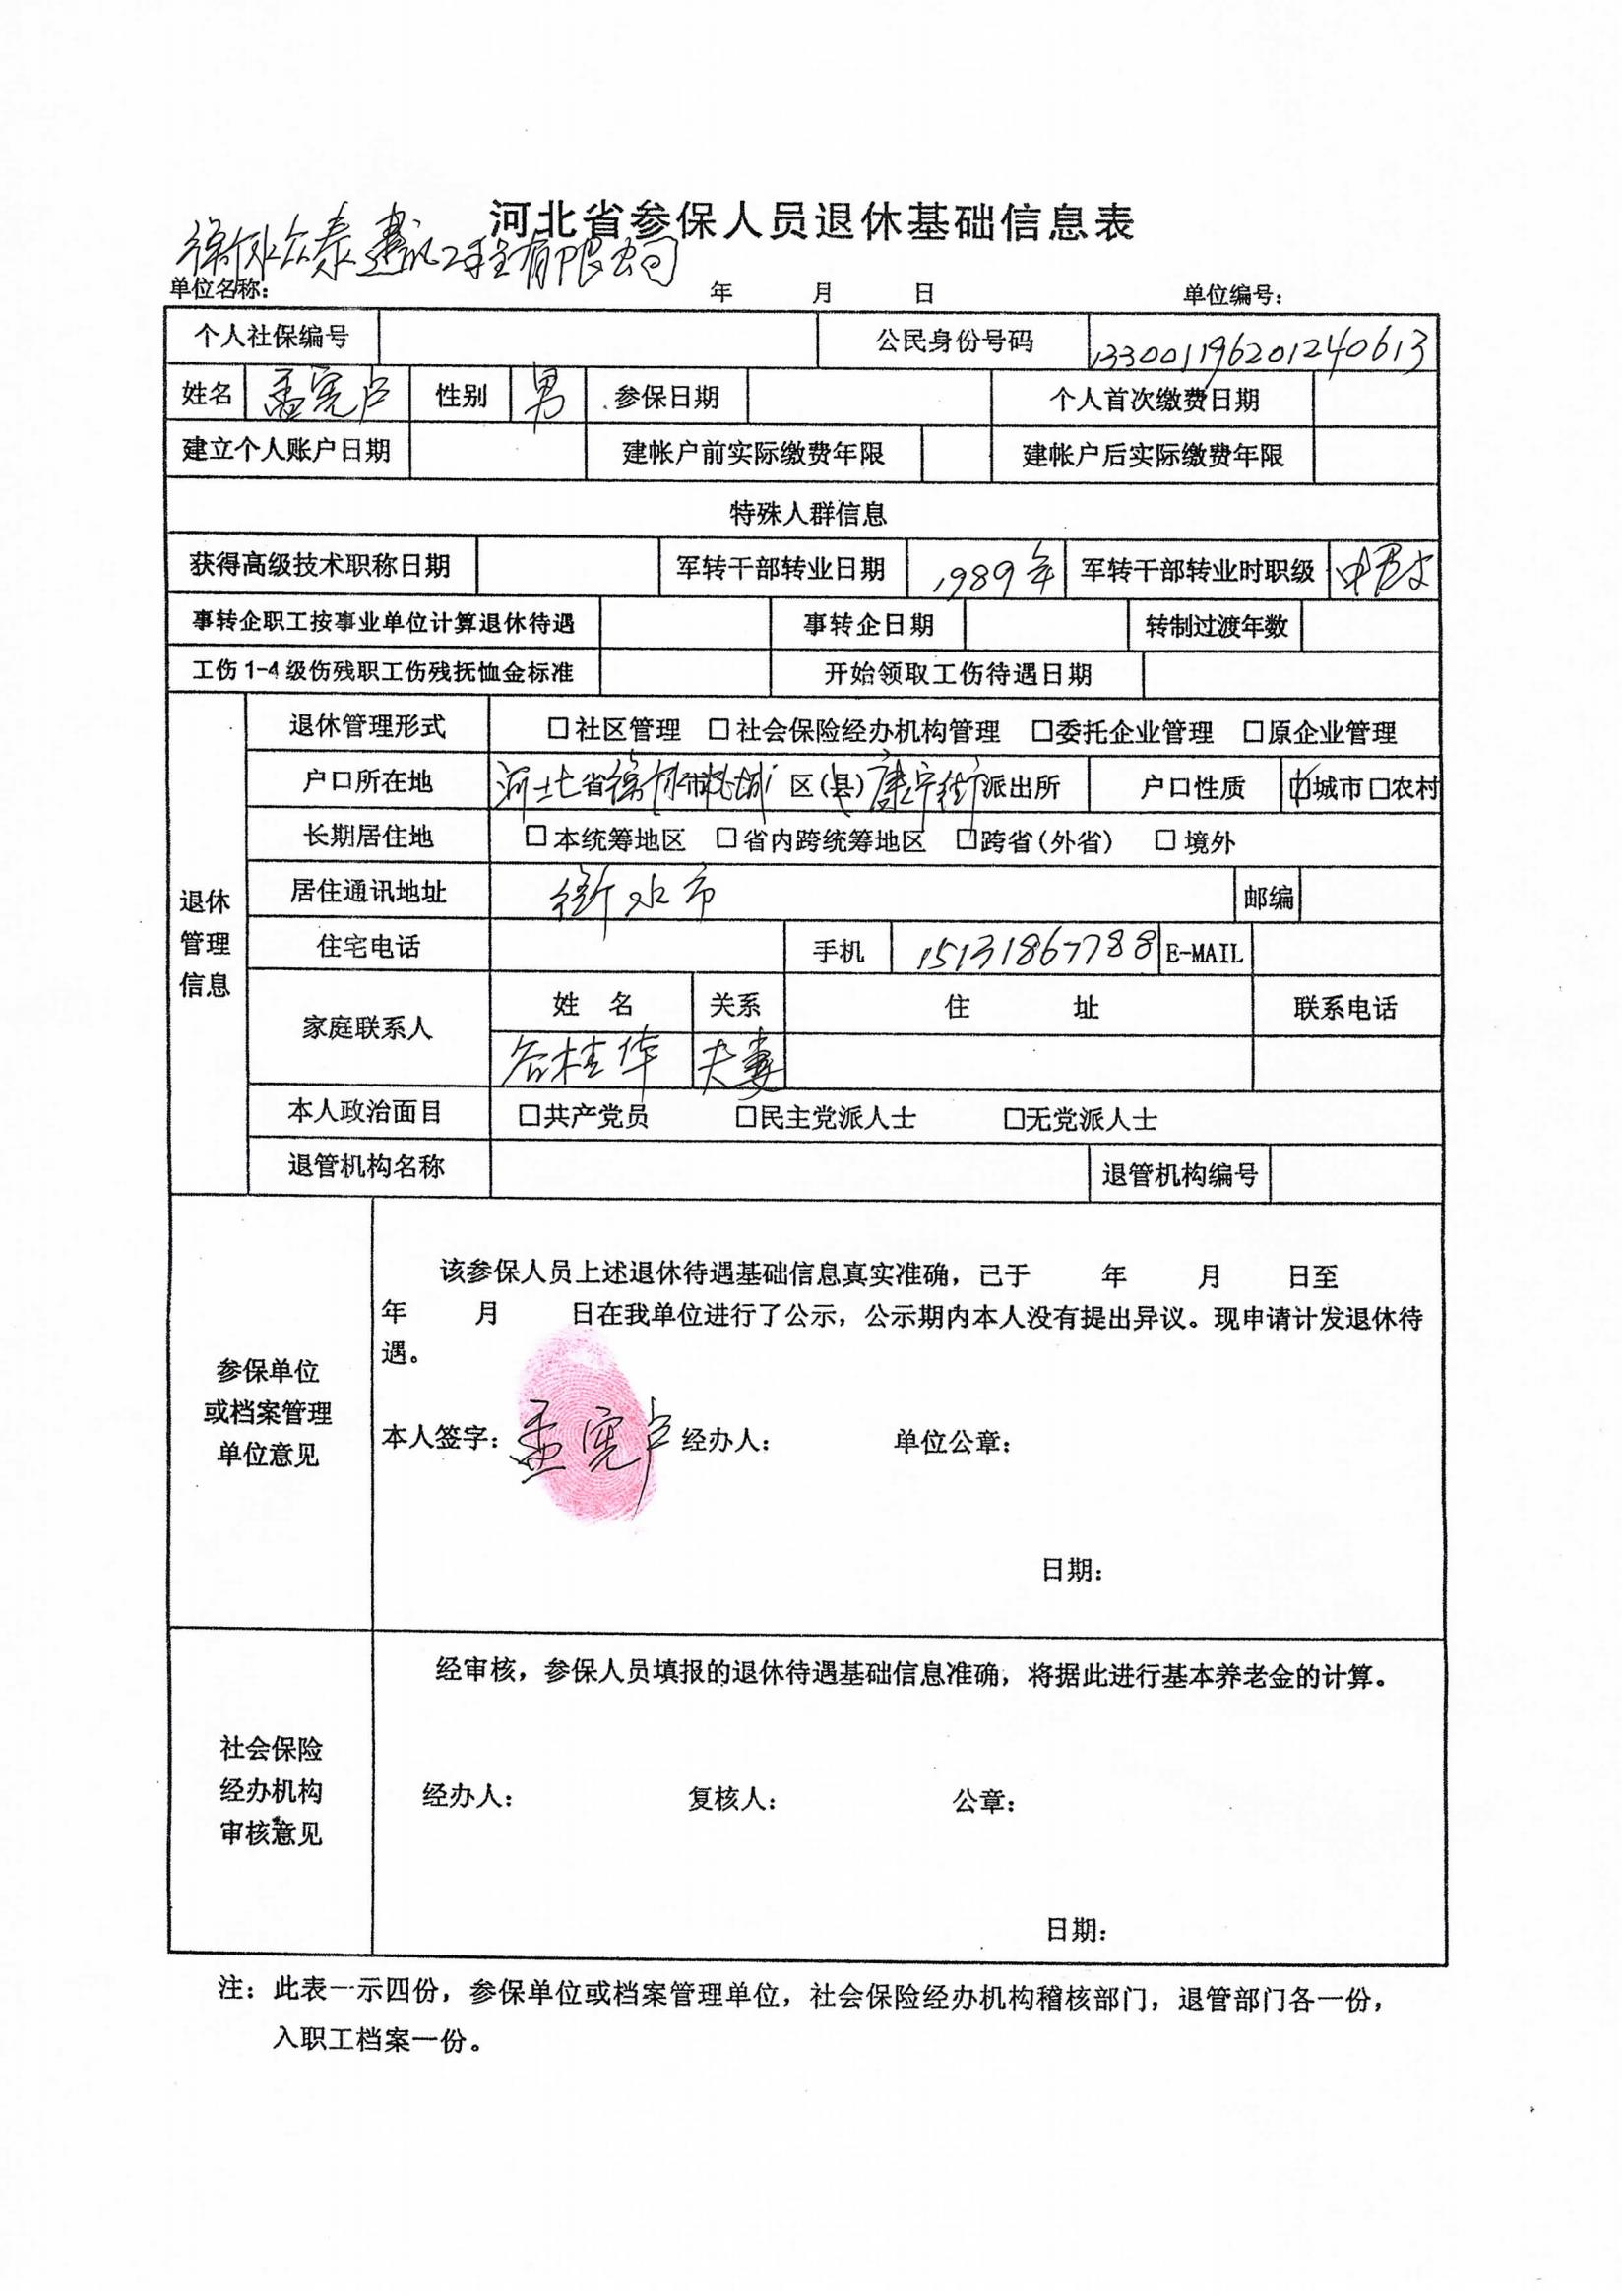 河北省参保人员退休基础信息表
衡水众泰建筑工程有限公司
单位名称： 年 月 日 单位编号：
个人社保编号 公民身份号码 133001196201240613
姓名 孟宪卢 性别 男 参保日期 个人首次缴费日期
建立个人账户日期 建帐户前实际缴费年限 建帐户后实际缴费年限
特殊人群信息
获得高级技术职称日期 军转干部转业日期 1989年 军转干部转业时职级
事转企职工按事业单位计算退休待遇 事转企日期 转制过渡年数
工伤1-4级伤残职工伤残抚恤金标准 开始领取工伤待遇日期
退休管理信息
退休管理形式 □社区管理 □社会保险经办机构管理 □委托企业管理 □原企业管理
户口所在地 河北省衡水市桃城区(县)康宁街派出所 户口性质 ☑城市□农村
长期居住地 □本统筹地区 □省内跨统筹地区 □跨省(外省) □境外
居住通讯地址 衡水市 邮编
住宅电话 手机 15131867788 E-MAIL
家庭联系人 姓 名 关系 住 址 联系电话
谷桂华 夫妻
本人政治面目 □共产党员 □民主党派人士 □无党派人士
退管机构名称 退管机构编号
参保单位
或档案管理
单位意见
该参保人员上述退休待遇基础信息真实准确，已于 年 月 日至
年 月 日在我单位进行了公示，公示期内本人没有提出异议。现申请计发退休待
遇。
本人签字：孟宪卢 经办人： 单位公章：
日期：
社会保险
经办机构
审核意见
经审核，参保人员填报的退休待遇基础信息准确，将据此进行基本养老金的计算。
经办人： 复核人： 公章：
日期：
注：此表一示四份，参保单位或档案管理单位，社会保险经办机构稽核部门，退管部门各一份，
入职工档案一份。